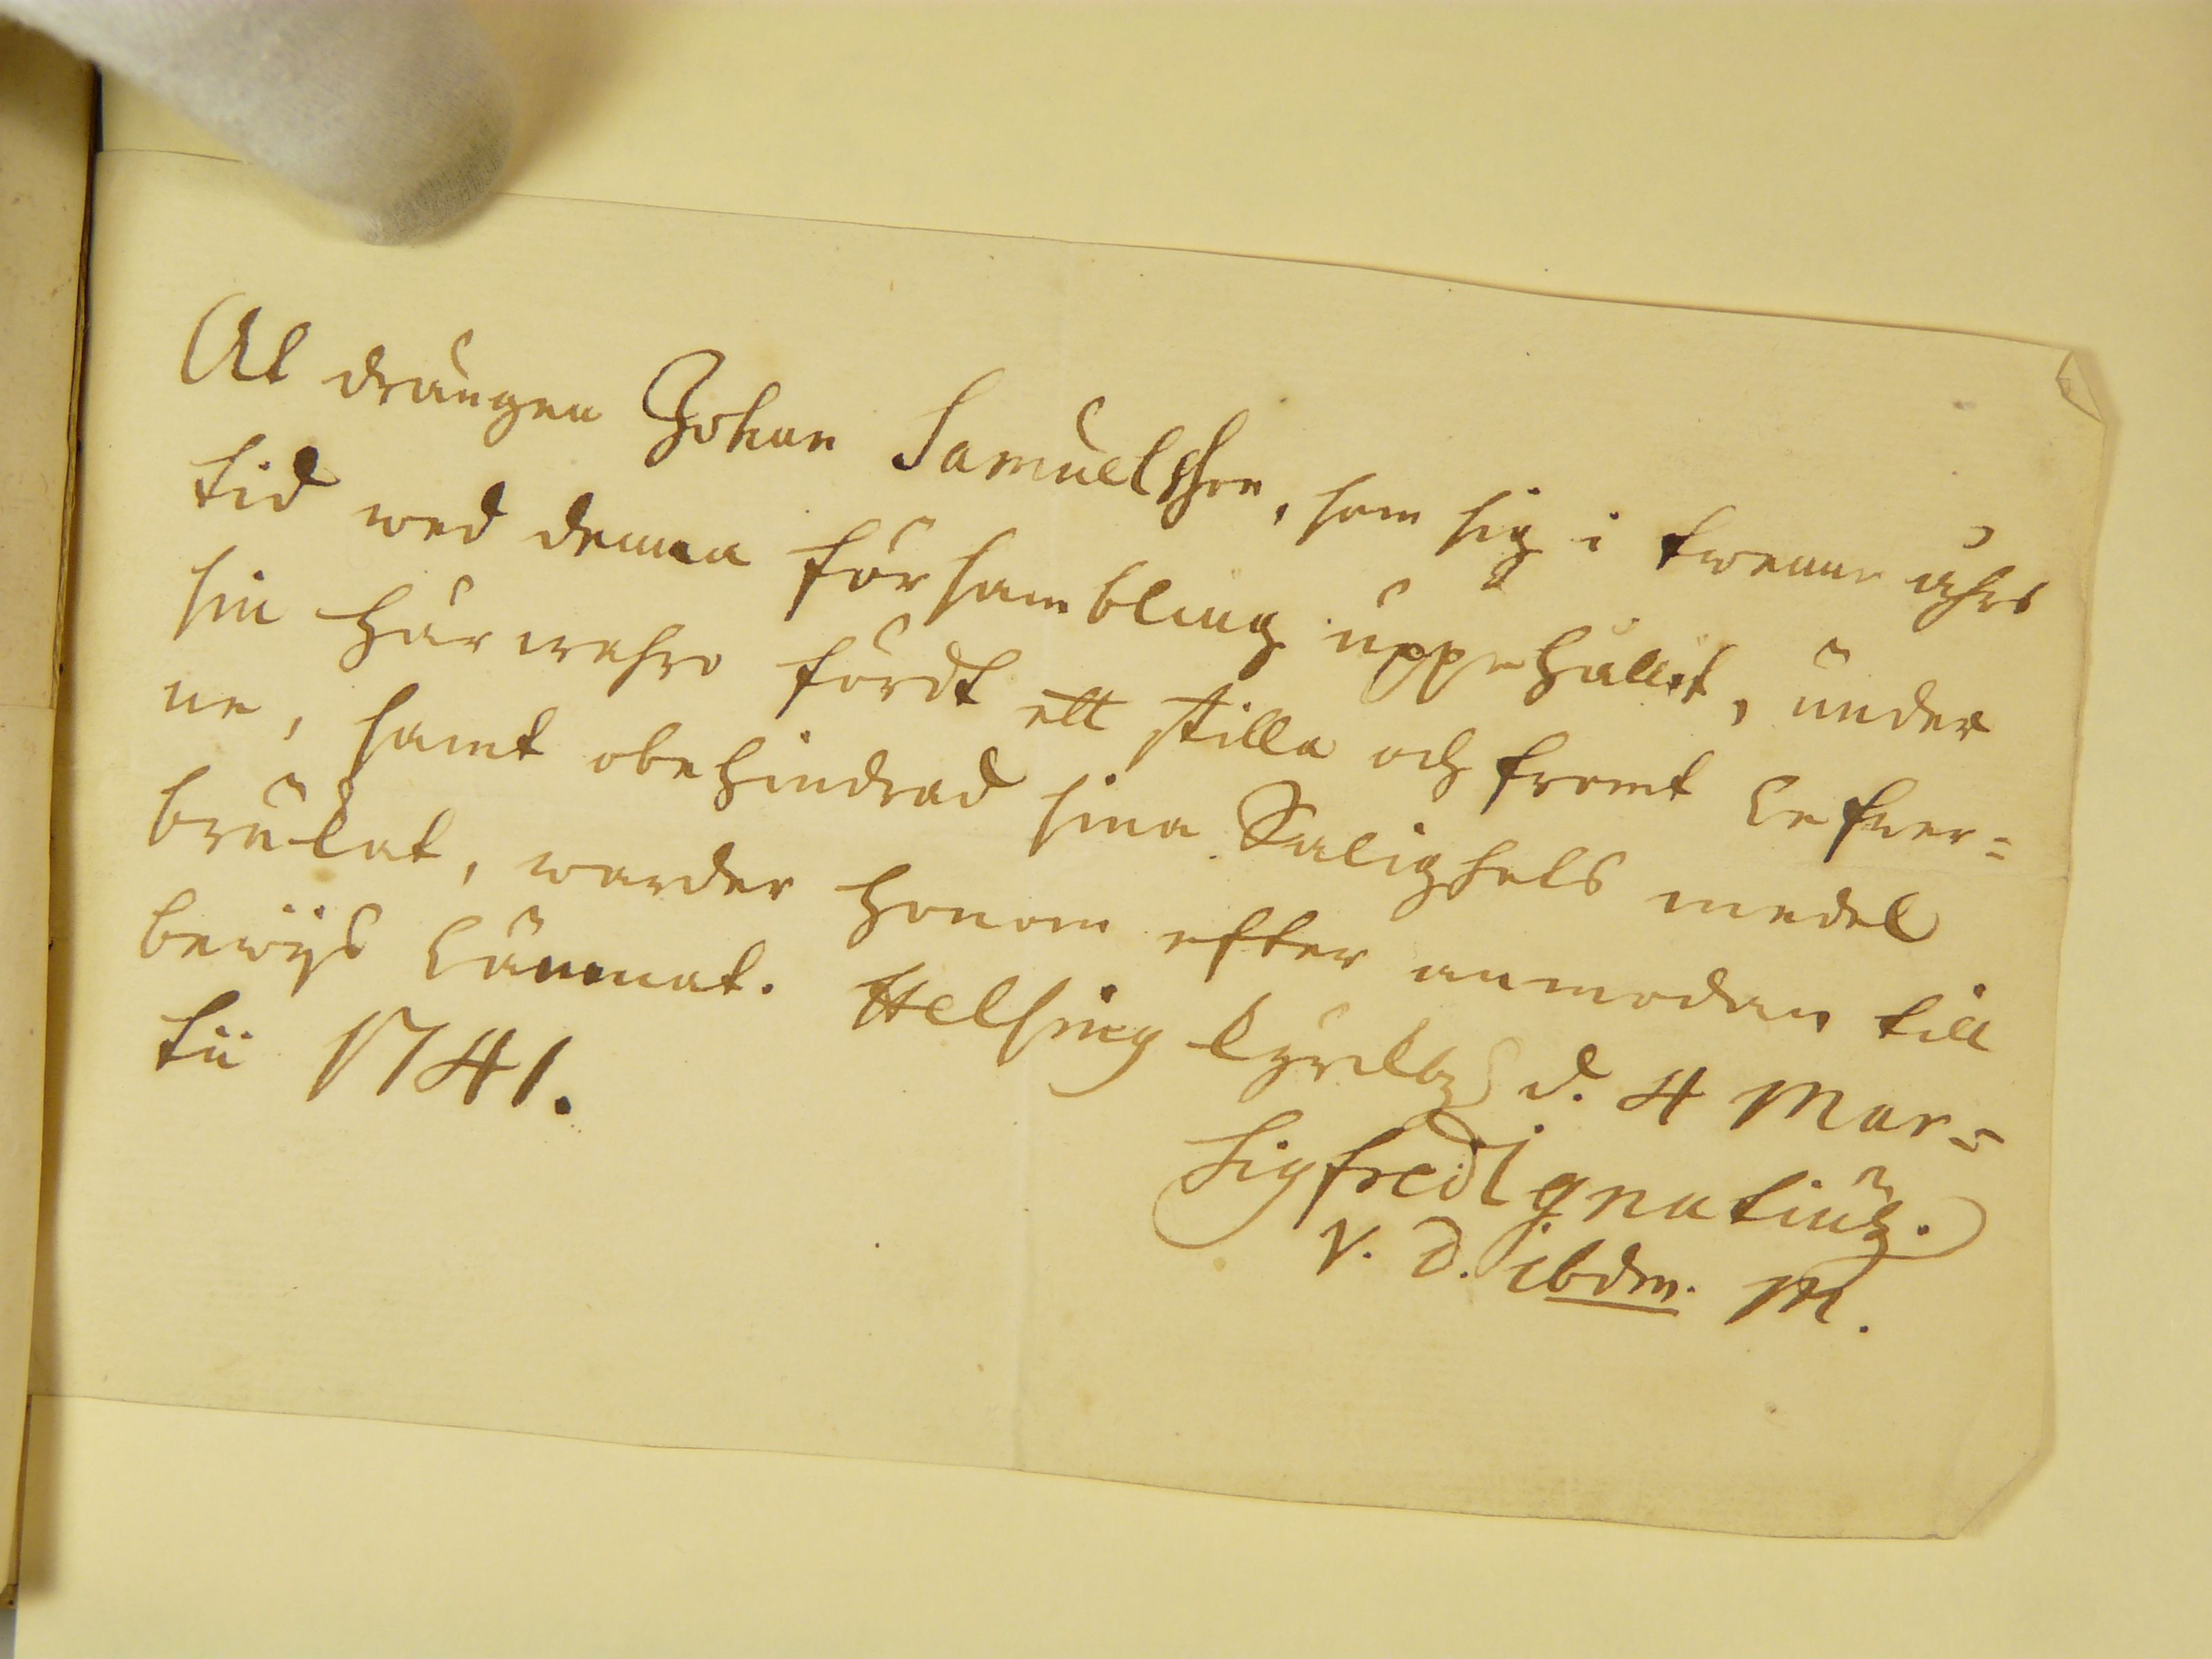 At drängen Johan Samuelsson, som sig i twenne åhrs
tid wed denna försambling uppehållit, under
sin härwahro fördt ett stilla och fromt lefwer=
ne, samt obehindrad sina Salighets medel
brukat, warder honom efter anmodan till
bewijs lämnat. Helsing kyrkby d. 4 Mar=
tii 1741.
Sigfred Ignatius.
V. D. ibdm. M.